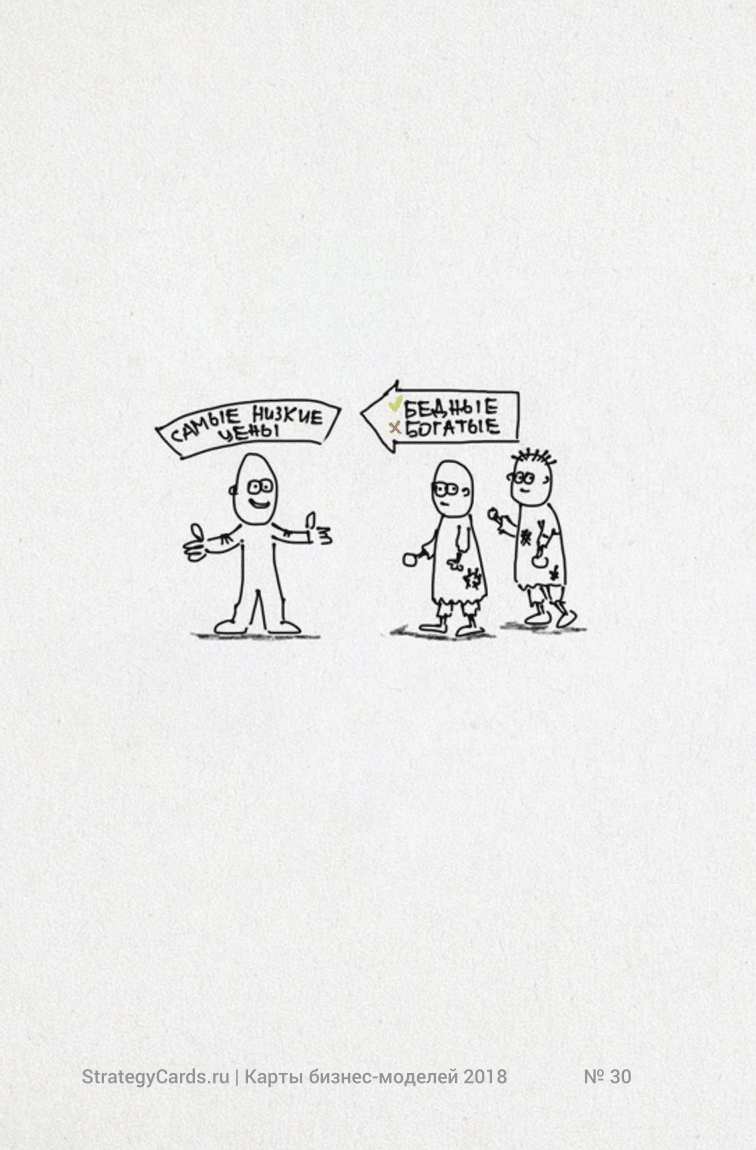 САМЫЕ НИЗКИЕ
ЦЕНЫ
БЕДНЫЕ
БОГАТЫЕ
StrategyCards.ru | Карты бизнес-моделей 2018 № 30